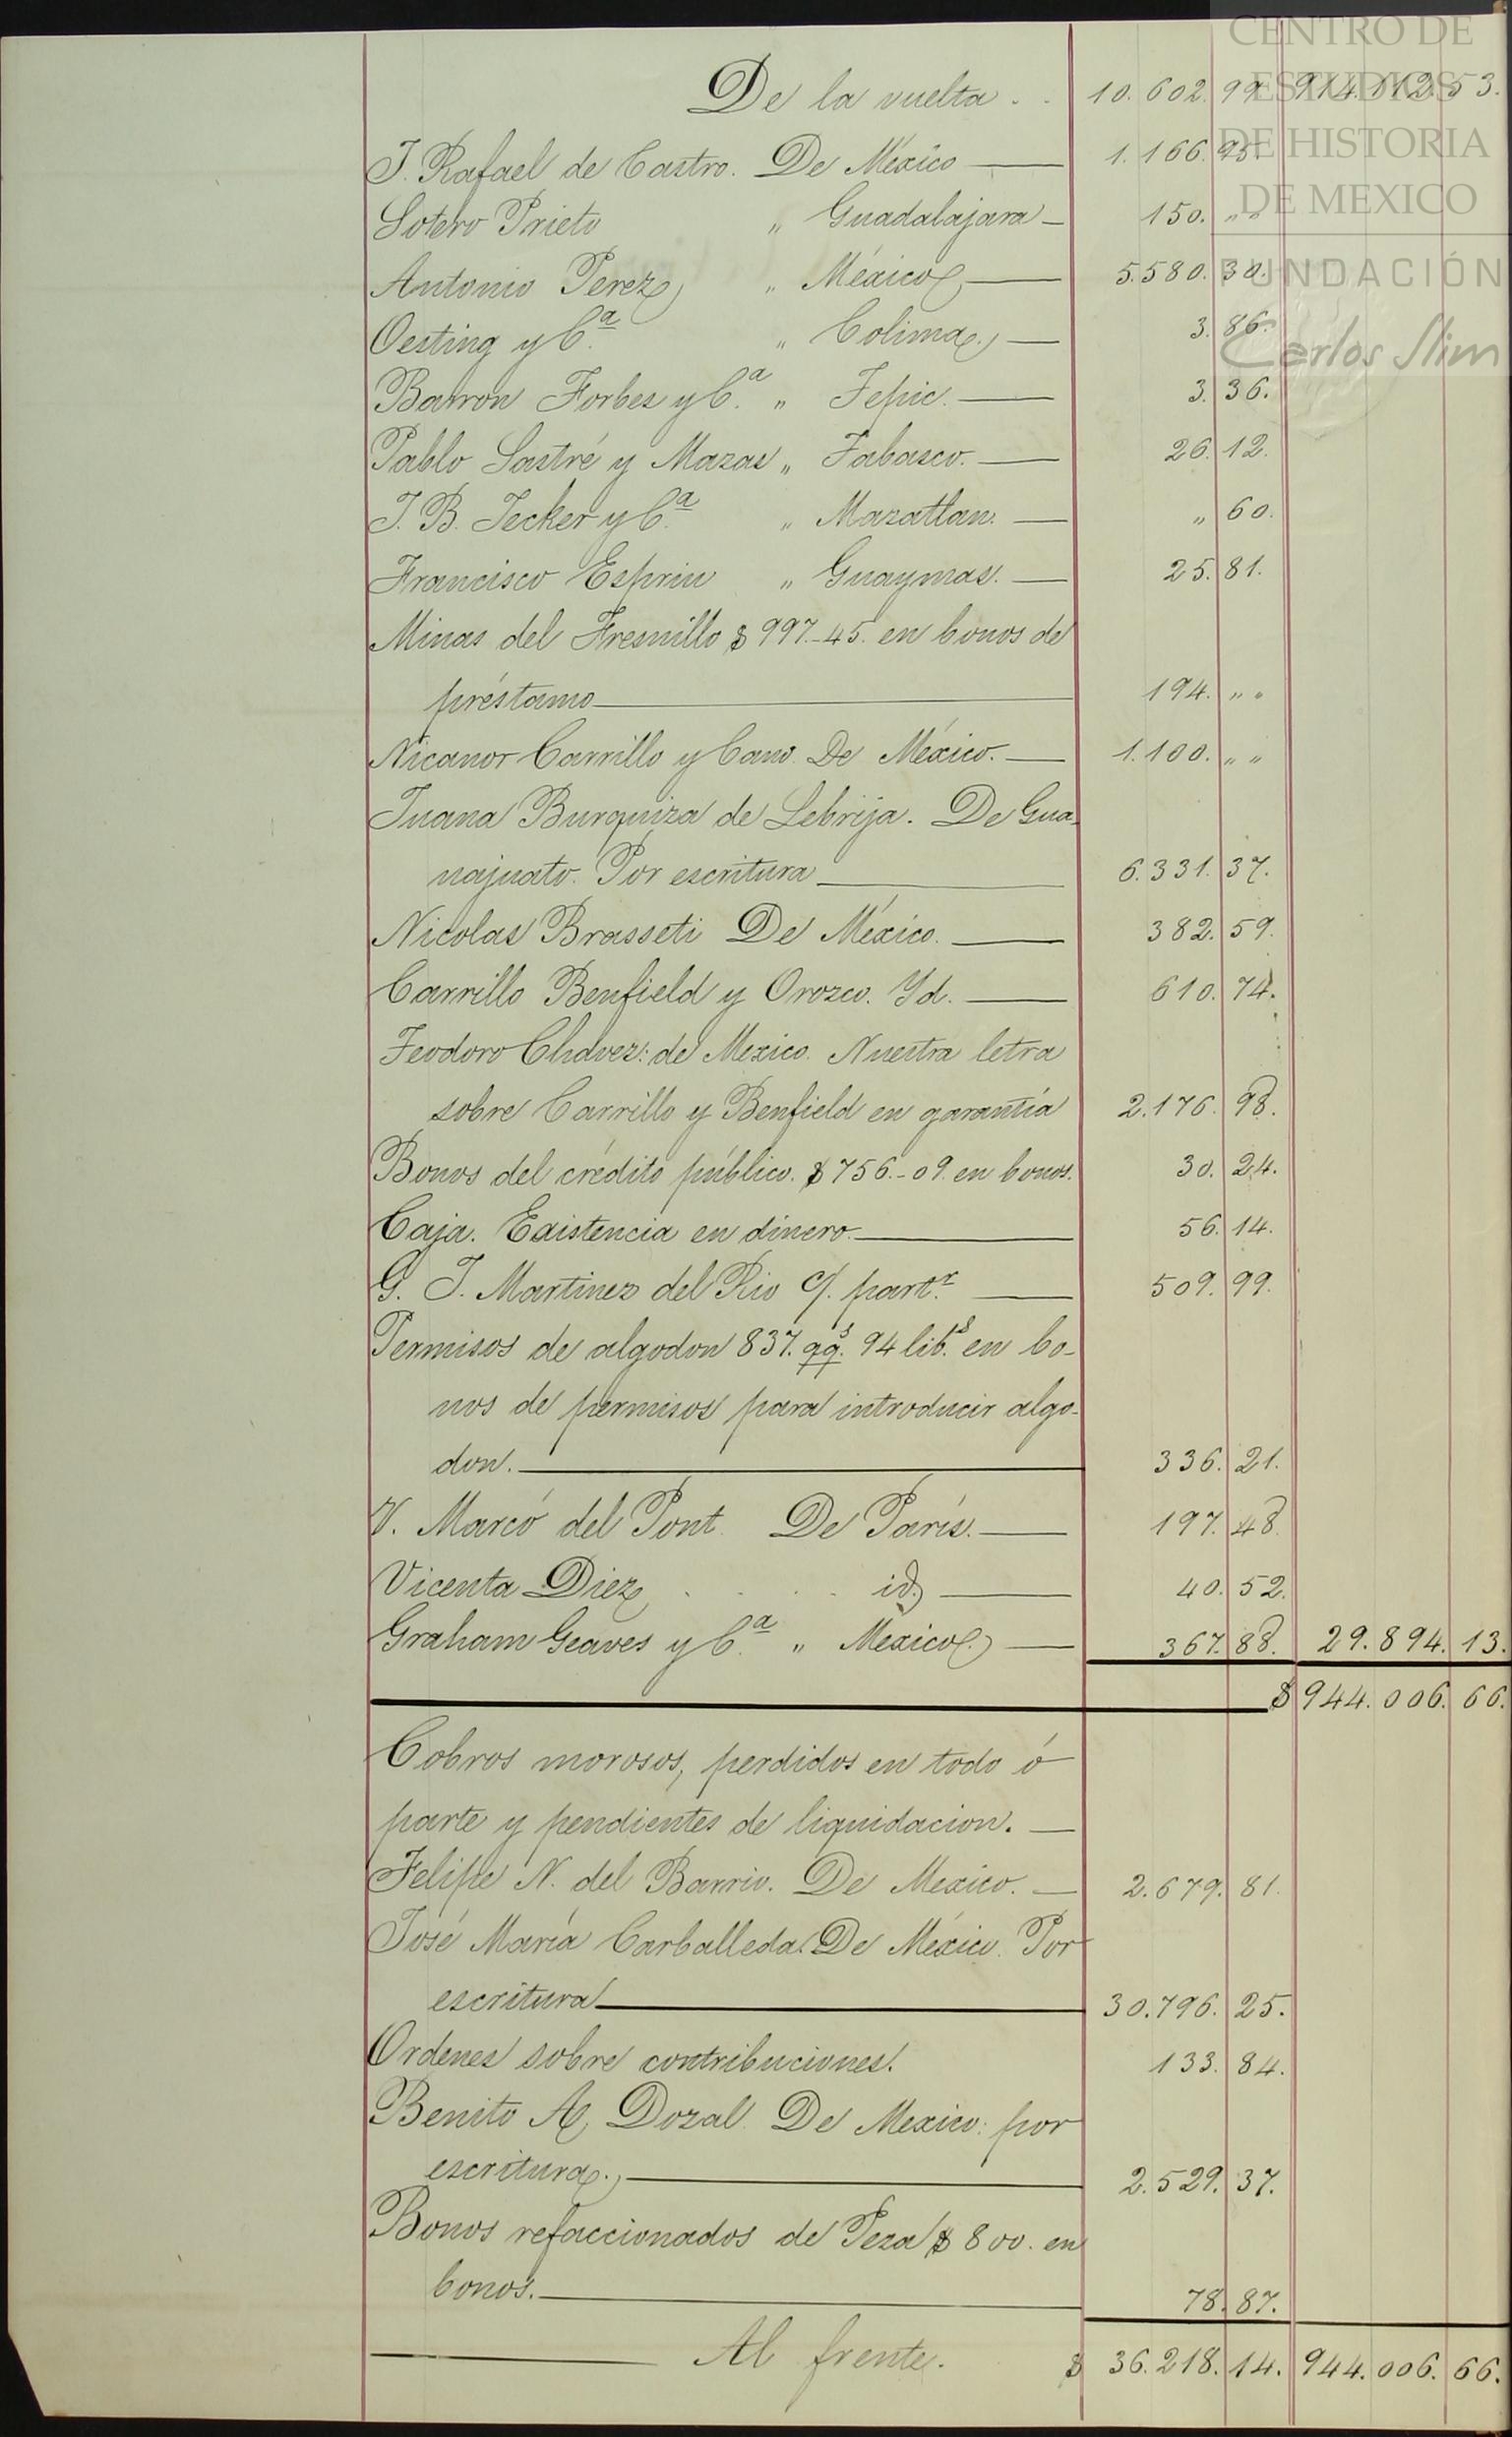 De la vuelta . . 10.602.99. 914.112.53.
J. Rafael de Castro. De México — 1.166.95.
Sotero Prieto „ Guadalajara — 150. „ „
Antonio Perez „ México — 5.580.30.
Oesting y Cª „ Colima. — 3.86.
Barron Forbes y Cª „ Tepic. — 3.36.
Pablo Sastré y Mazas „ Tabasco. — 26.12.
J. B. Jecker y Cª „ Mazatlan. — „ 60.
Francisco Espriu „ Guaymas. — 25.81.
Minas del Fresnillo $ 997.-45. en bonos de
préstamo — 194. „ „
Nicanor Carrillo y Cano. De México. — 1.100. „ „
Juana Burquiza de Lebrija. De Gua-
najuato. Por escritura — 6.331.37.
Nicolas Brasseti De México. — 382.59.
Carrillo Benfield y Orozco. Yd. — 610.74.
Teodoro Chavez: de Mexico. Nuestra letra
sobre Carrillo y Benfield en garantía 2.176.98.
Bonos del crédito público. $ 756.-09. en bonos. 30.24.
Caja. Existencia en dinero. — 56.14.
G. J. Martinez del Rio c/. partʳ. — 509.99.
Permisos de algodon 837. qqˢ. 94 libˢ. en bo-
nos de permisos para introducir algo-
don. — 336.21.
V. Marcó del Pont. De París. — 197.48.
Vicenta Diez . . . . id. — 40.52.
Graham Geaves y Cª „ Mexico. — 367.88. 29.894.13.
$ 944.006.66.
Cobros morosos, perdidos en todo ó
parte y pendientes de liquidacion. —
Felipe N. del Barrio. De Mexico. — 2.679.81.
José María Carballeda. De México. Por
escritura — 30.796.25.
Ordenes sobre contribuciones. 133.84.
Benito A. Dozal. De Mexico: por
escritura. — 2.529.37.
Bonos refaccionados de Peza $ 800. en
bonos. — 78.87.
Al frente. $ 36.218.14. 944.006.66.
CENTRO DE
ESTUDIOS
DE HISTORIA
DE MEXICO
FUNDACIÓN
Carlos Slim